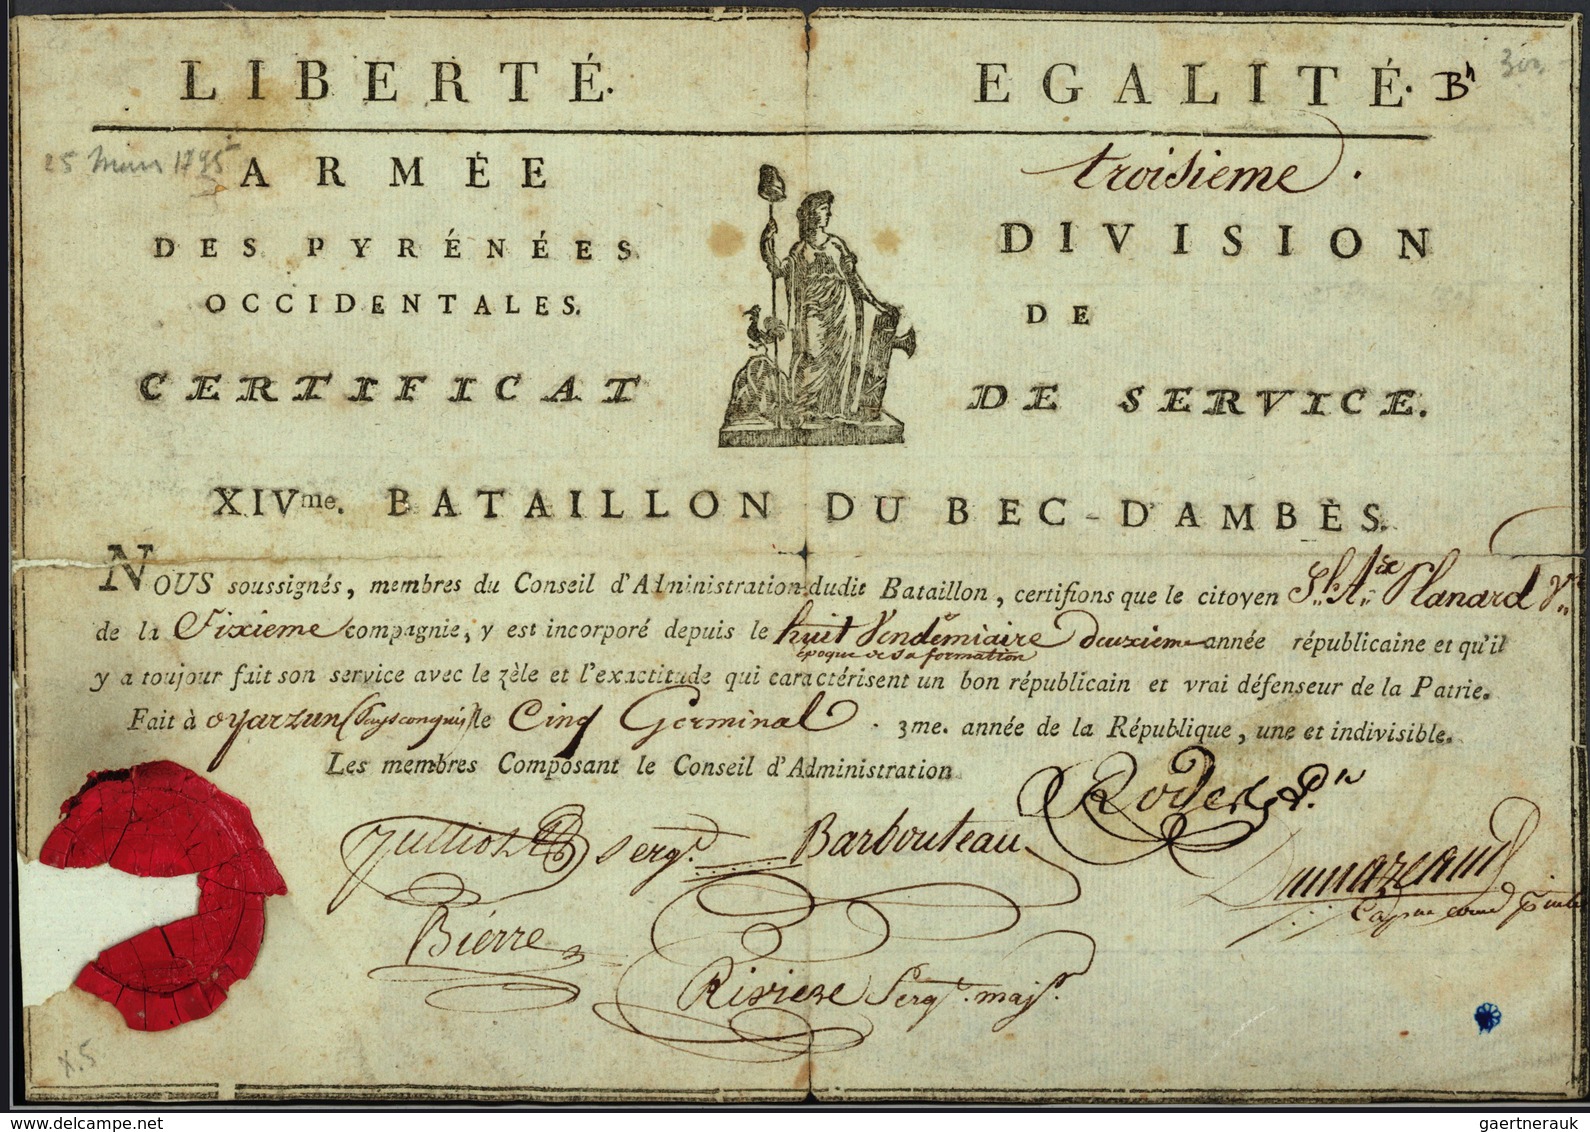 LIBERTÉ. EGALITÉ. Bn
300
25 Mars 1795
ARMÉE
DES PYRÉNÉES
OCCIDENTALES.
troisieme.
DIVISION
DE
CERTIFICAT DE SERVICE.
XIVme. BATAILLON DU BEC-D'AMBÈS.
NOUS soussignés, membres du Conseil d'Administration dudit Bataillon, certifions que le citoyen Planard
de la Sixieme compagnie, y est incorporé depuis le huit Vendémiaire deuxieme année républicaine et qu'il
époque de sa formation
y a toujour fait son service avec le zèle et l'exactitude qui caractérisent un bon républicain et vrai défenseur de la Patrie.
Fait à oyarzun (Pays conquis) le Cinq Germinal. 3me. année de la République, une et indivisible.
Les membres Composant le Conseil d'Administration
Julliot sergt. Barbouteau
Dumazeaud
Bierre
Riviere Sergt. majr.
X.5
gaertnerauk
delcampe.net